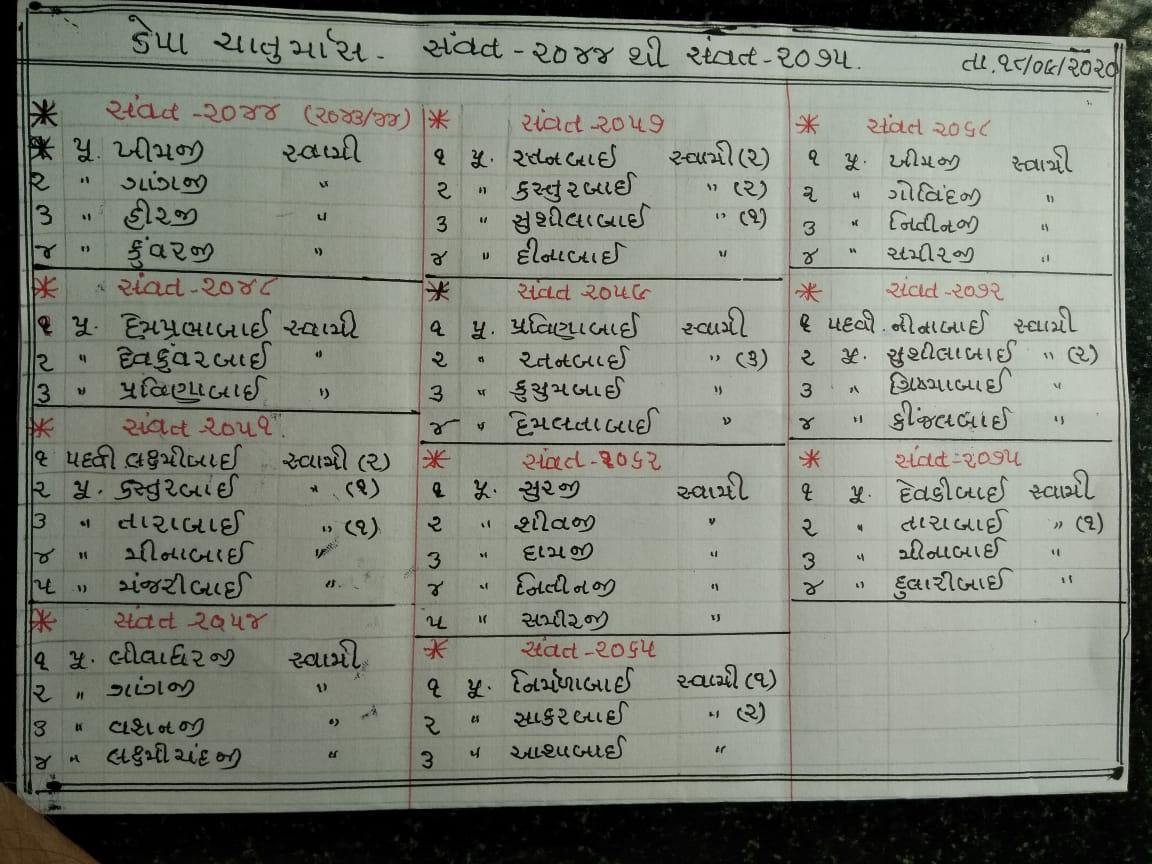 કેપા ચાતુર્માસ - સંવત - ૨૦૪૪ થી સંવત - ૨૦૭૫.
તા. ૧૮/૦૬/૨૦૨૦
* સંવત - ૨૦૪૪ (૨૦૪૩/૪૪)
* પૂ. ખીમજી સ્વામી
૨ " ગાંગજી "
૩ " હીરજી "
૪ " કુંવરજી "
* સંવત - ૨૦૪૮
૧ પૂ. હેમપ્રભાબાઈ સ્વામી
૨ " દેવકુંવરબાઈ "
૩ " પ્રવિણાબાઈ "
* સંવત ૨૦૫૧.
૧ પદવી લક્ષ્મીબાઈ સ્વામી (૨)
૨ પૂ. કસ્તુરબાઈ " (૧)
૩ " તારાબાઈ " (૧)
૪ " મીનાબાઈ "
૫ " મંજરીબાઈ "
* સંવત ૨૦૫૪
૧ પૂ. લીલાધરજી સ્વામી
૨ " ગાંગજી "
૩ " વશનજી "
૪ " લક્ષ્મીચંદજી "
* સંવત - ૨૦૫૭
૧ પૂ. રતનબાઈ સ્વામી (૨)
૨ " કસ્તુરબાઈ " (૨)
૩ " સુશીલાબાઈ " (૧)
૪ " હીનાબાઈ "
* સંવત ૨૦૫૯
૧ પૂ. પ્રવિણાબાઈ સ્વામી
૨ " રતનબાઈ " (૩)
૩ " કુસુમબાઈ "
૪ " હેમલતાબાઈ "
* સંવત - ૨૦૬૨
૧ પૂ. સુરજી સ્વામી
૨ " શીવજી "
૩ " દામજી "
૪ " નિતીનજી "
૫ " સમીરજી "
* સંવત - ૨૦૬૫
૧ પૂ. નિર્મળાબાઈ સ્વામી (૧)
૨ " સાકરબાઈ " (૨)
૩ " આશાબાઈ "
* સંવત ૨૦૬૮
૧ પૂ. ખીમજી સ્વામી
૨ " ગોવિંદજી "
૩ " નિતીનજી "
૪ " સમીરજી "
* સંવત - ૨૦૭૨
૧ પદવી. નીનાબાઈ સ્વામી
૨ પૂ. સુશીલાબાઈ " (૨)
૩ " ગ્રિષ્માબાઈ "
૪ " કીંજલબાઈ "
* સંવત - ૨૦૭૫
૧ પૂ. દેવકીબાઈ સ્વામી
૨ " તારાબાઈ " (૧)
૩ " મીનાબાઈ "
૪ " દુલારીબાઈ "